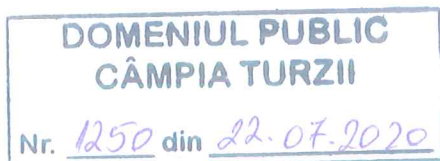 DOMENIUL PUBLIC
CÂMPIA TURZII
Nr. 1250 din 22.07.2020